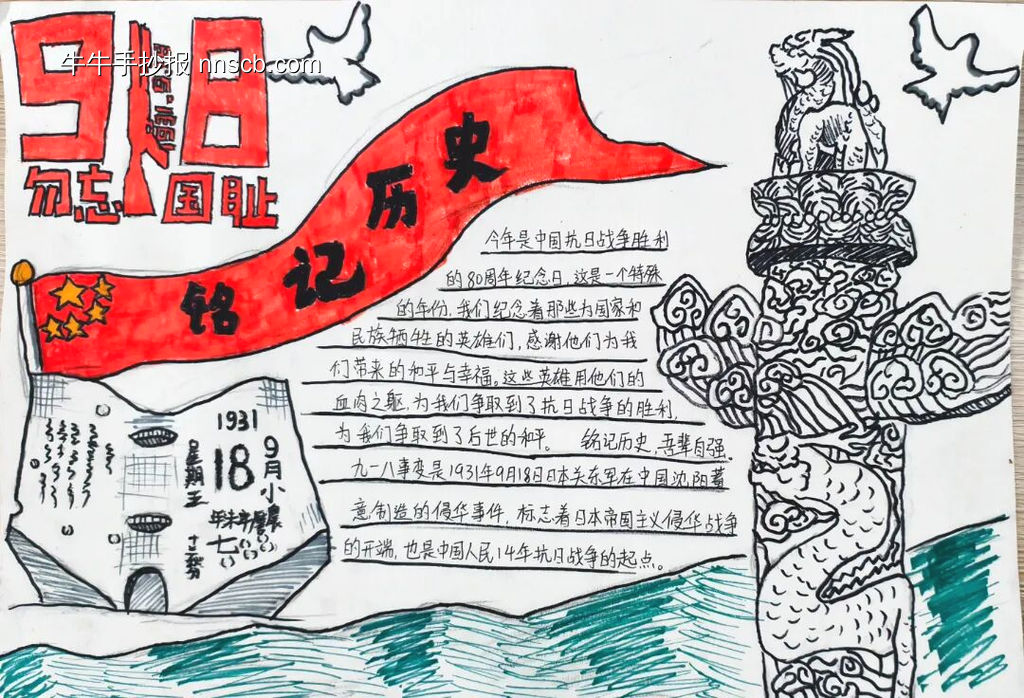 918
牛牛手抄报 nnscb.com
勿忘国耻
铭记历史
今年是中国抗日战争胜利
的80周年纪念日,这是一个特殊
的年份,我们纪念着那些为国家和
民族牺牲的英雄们,感谢他们为我
们带来的和平与幸福。这些英雄用他们的
血肉之躯,为我们争取到了抗日战争的胜利,
为我们争取到了后世的和平。 铭记历史,吾辈自强。
九一八事变是1931年9月18日日本关东军在中国沈阳蓄
意制造的侵华事件,标志着日本帝国主义侵华战争
的开端,也是中国人民14年抗日战争的起点。
1931
9月小
18
星期五